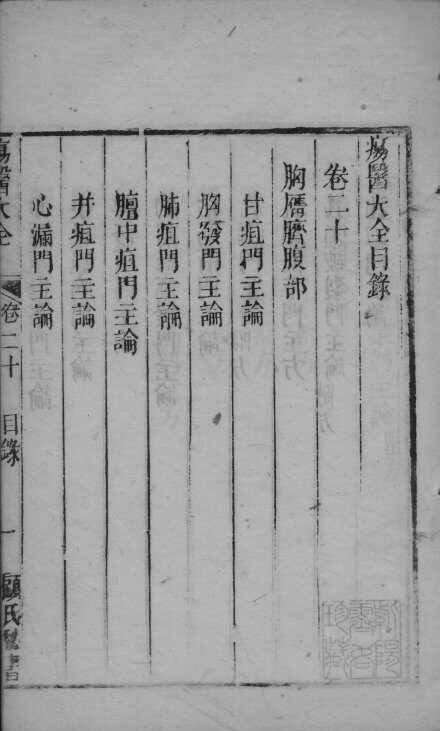 瘍醫大全目錄
卷二十
胸膺臍腹部
甘疽門主論
胸發門主論
肺疽門主論
膻中疽門主論
井疽門主論
心漏門主論
瘍醫大全 卷二十 目錄 一 顧氏